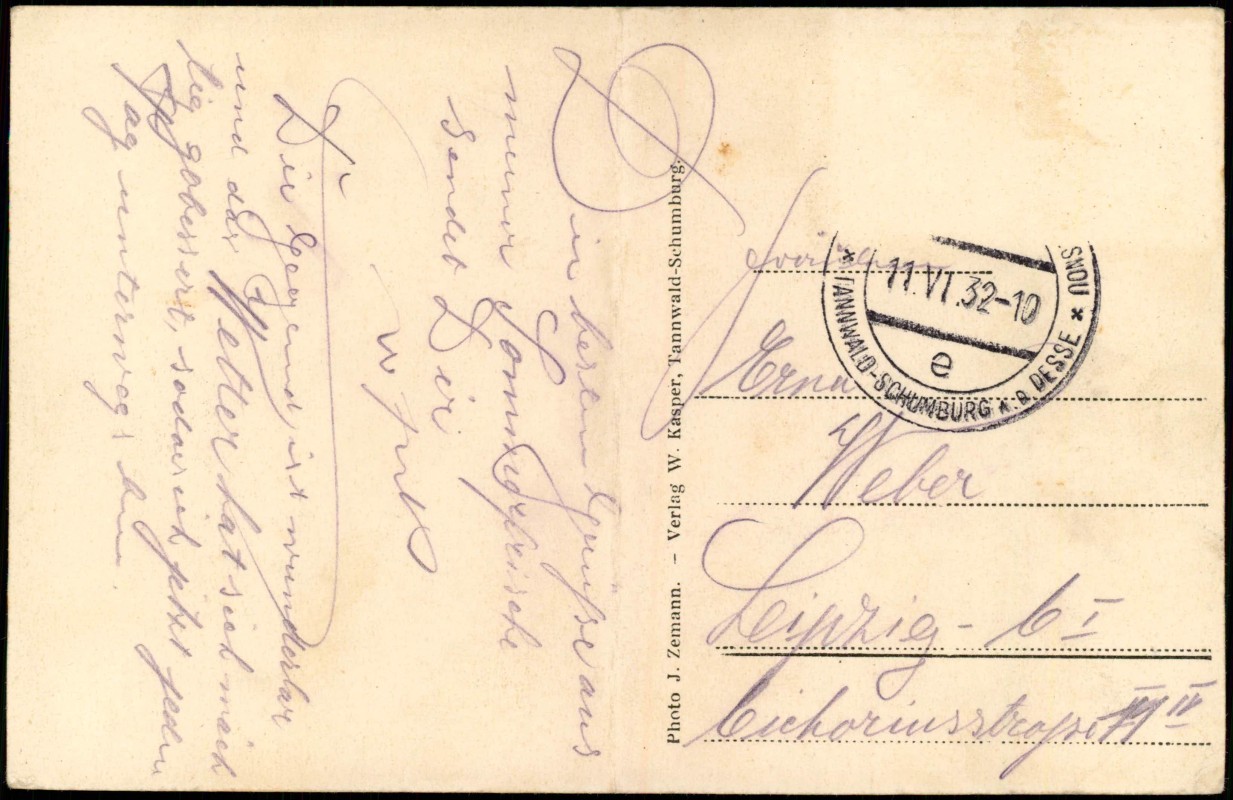 Die besten Grüße aus
meiner Sommerfrische
sendet Dir
Die Gegend ist wunderbar
und das Wetter hat sich mäch
tig gebessert, sodas ich jetzt jeden
Tag unterwegs bin.
Photo J. Zemann. – Verlag W. Kasper, Tannwald-Schumburg.
TANNWALD-SCHUMBURG A. D. DESSE
11.VI.32-10
e
Fräulein
Erna
Weber
Leipzig - C I
Cichoriusstrasse IV